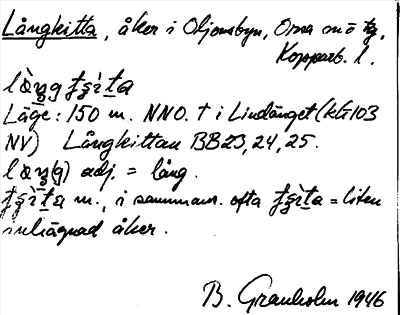 Långkitta, åker i Oljonsbyn, Orsa sn
Kopparb. l.
Läge: 150 m. NNO. † i Lindänget (kG103
NV) Långkittan BB23, 24, 25.
adj. = lång.
m., i sammans. ofta = liten
inhägnad åker.
B. Granholm 1946